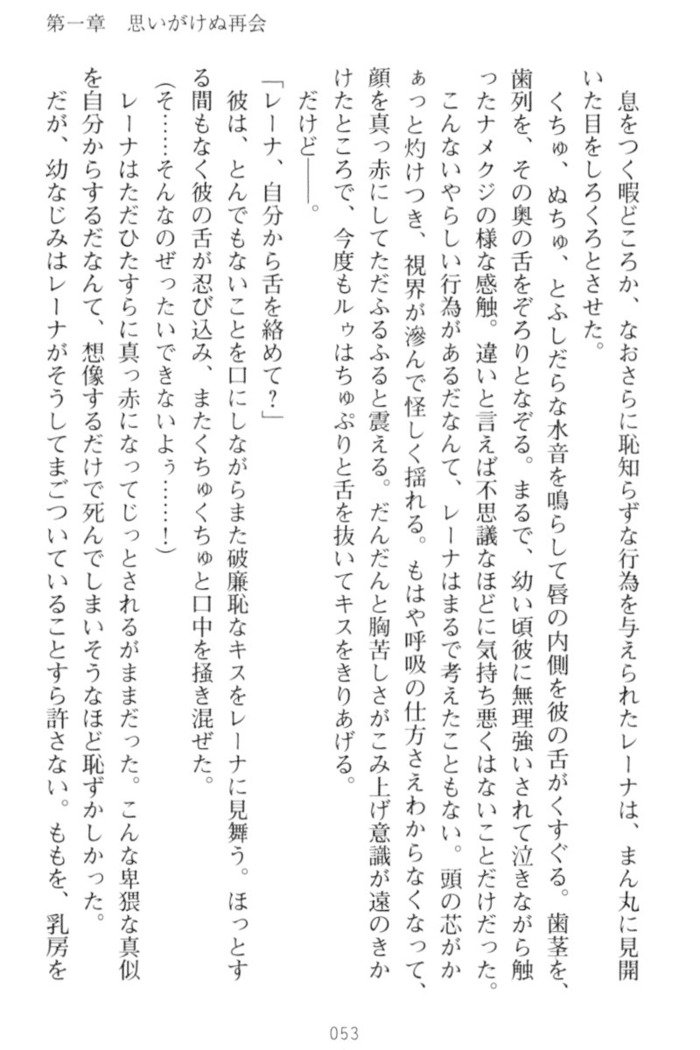 第一章　思いがけぬ再会
　息をつく暇どころか、なおさらに恥知らずな行為を与えられたレーナは、まん丸に見開
いた目をしろくろとさせた。
　くちゅ、ぬちゅ、とふしだらな水音を鳴らして唇の内側を彼の舌がくすぐる。歯茎を、
歯列を、その奥の舌をぞろりとなぞる。まるで、幼い頃彼に無理強いされて泣きながら触
ったナメクジの様な感触。違いと言えば不思議なほどに気持ち悪くはないことだけだった。
　こんないやらしい行為があるだなんて、レーナはまるで考えたこともない。頭の芯がか
ぁっと灼けつき、視界が滲んで怪しく揺れる。もはや呼吸の仕方さえわからなくなって、
顔を真っ赤にしてただふるふると震える。だんだんと胸苦しさがこみ上げ意識が遠のきか
けたところで、今度もルゥはちゅぷりと舌を抜いてキスをきりあげる。
　だけど――。
「レーナ、自分から舌を絡めて？」
　彼は、とんでもないことを口にしながらまた破廉恥なキスをレーナに見舞う。ほっとす
る間もなく彼の舌が忍び込み、またくちゅくちゅと口中を掻き混ぜた。
（そ……そんなのぜったいできないよぅ……！）
　レーナはただひたすらに真っ赤になってじっとされるがままだった。こんな卑猥な真似
を自分からするだなんて、想像するだけで死んでしまいそうなほど恥ずかしかった。
　だが、幼なじみはレーナがそうしてまごついていることすら許さない。ももを、乳房を
053